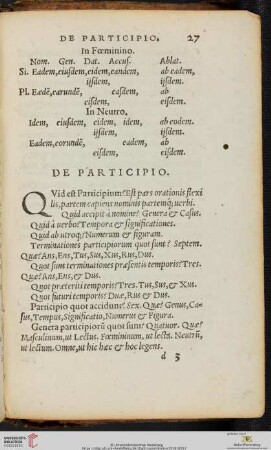 DE PARTICIPIO, 27
In Fœminino.
Nom. Gen. Dat. Accus. Ablat.
Si. Eadem, eiusdem, eidem, eandem, ab eadem,
ijsdem, ijsdem.
Pl. Eædē, earundē, easdem, ab
eisdem, eisdem.
In Neutro,
Idem, eiusdem, eidem, idem, ab eodem.
ijsdem, ijsdem.
Eadem, eorundē, eadem, ab
eisdem, eisdem.
DE PARTICIPIO.
QVid est Participium? Est pars orationis flexi
lis, partem capiens nominis partemq́; uerbi.
Quid accipit à nomine? Genera & Casus.
Quid à uerbo? Tempora & significationes.
Quid ab utroq;? Numerum & figuram.
Terminationes participiorum quot sunt? Septem.
Quæ? Ans, Ens, Tus, Sus, Xus, Rus, Dus.
Quot sunt terminationes præsentis temporis? Tres.
Quæ? Ans, Ens, & Dus.
Quot præteriti temporis? Tres. Tus, Sus, & Xus.
Quot futuri temporis? Duæ, Rus & Dus.
Participio quot accidunt? Sex. Quæ? Genus, Ca-
sus, Tempus, Significatio, Numerus & Figura.
Genera participiorū quot sunt? Quatuor. Quæ?
Masculinum, ut Lectus. Fœmininum, ut lecta. Neutrū,
ut lectum. Omne, ut hic hæc & hoc legens.
d 3
UNIVERSITÄTS-
BIBLIOTHEK
HEIDELBERG